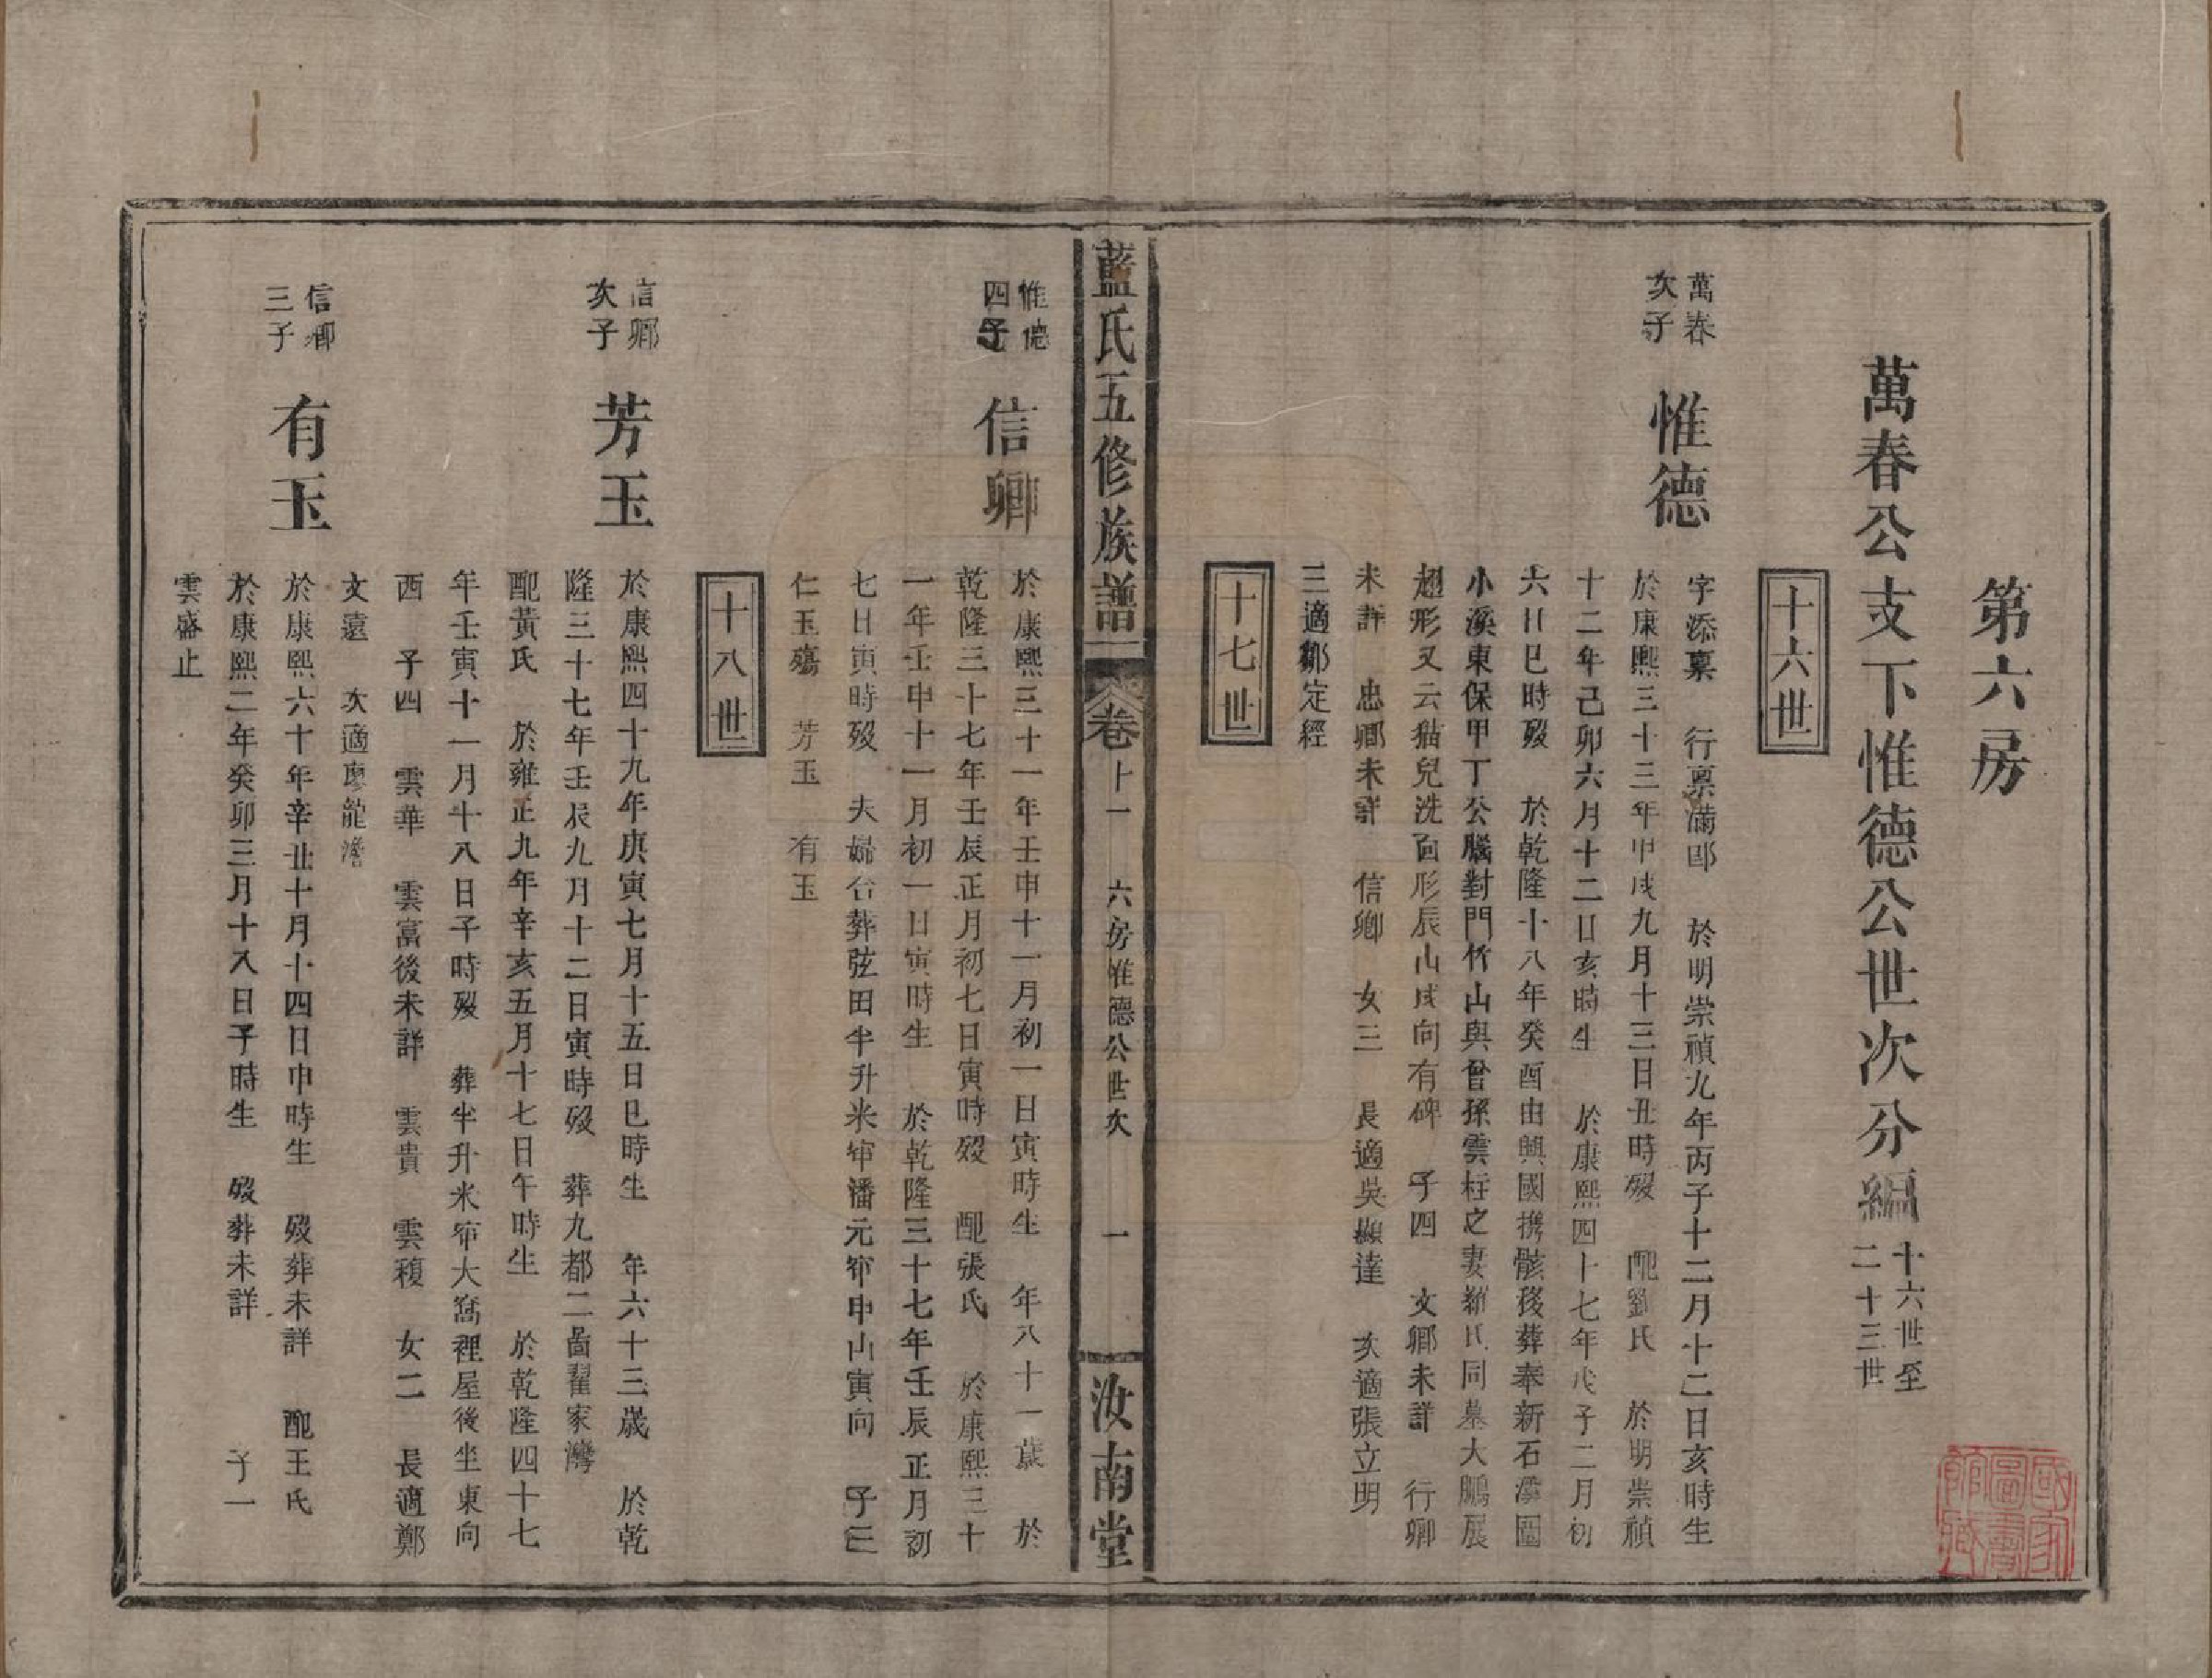 第六房
萬春公支下惟德公世次分編 十六世至二十三世
十六世
萬春次子
惟德
字添稟 行稟滿郎 於明崇禎九年丙子十二月十二日亥時生
於康熙三十三年甲戌九月十三日丑時歿 配劉氏 於明崇禎
十二年己卯六月十二日亥時生 於康熙四十七年戊子二月初
六日巳時歿 於乾隆十八年癸酉由興國攜骸移葬奉新石溪圖
小溪東保甲丁公腦對門竹山與曾孫雲柱之妻羅氏同墓大鵬展
翅形又云貓兒洗面形辰山戌向有碑 子四 文卿未詳 行卿
未詳 忠卿未詳 信卿 女三 長適吳顯達 次適張立明
三適鄒定經
十七世
藍氏五修族譜 卷十一 六房惟德公世次 一 汝南堂
惟德四子
信卿
於康熙三十一年壬申十一月初一日寅時生 年八十一歲 於
乾隆三十七年壬辰正月初七日寅時歿 配張氏 於康熙三十
一年壬申十一月初一日寅時生 於乾隆三十七年壬辰正月初
七日寅時歿 夫婦合葬弦田半升米窂潘元窂申山寅向 子三
仁玉殤 芳玉 有玉
十八世
信卿次子
芳玉
於康熙四十九年庚寅七月十五日巳時生 年六十三歲 於乾
隆三十七年壬辰九月十二日寅時歿 葬九都二啚翟家灣
配黃氏 於雍正九年辛亥五月十七日午時生 於乾隆四十七
年壬寅十一月十八日子時歿 葬半升米窂大窩裡屋後坐東向
西 子四 雲華 雲富後未詳 雲貴 雲𥠖 女二 長適鄭
文遠 次適廖龍
信卿三子
有玉
於康熙六十年辛丑十月十四日申時生 歿葬未詳 配王氏
於康熙二年癸卯三月十八日子時生 歿葬未詳 子一
雲盛止
國家圖書館藏